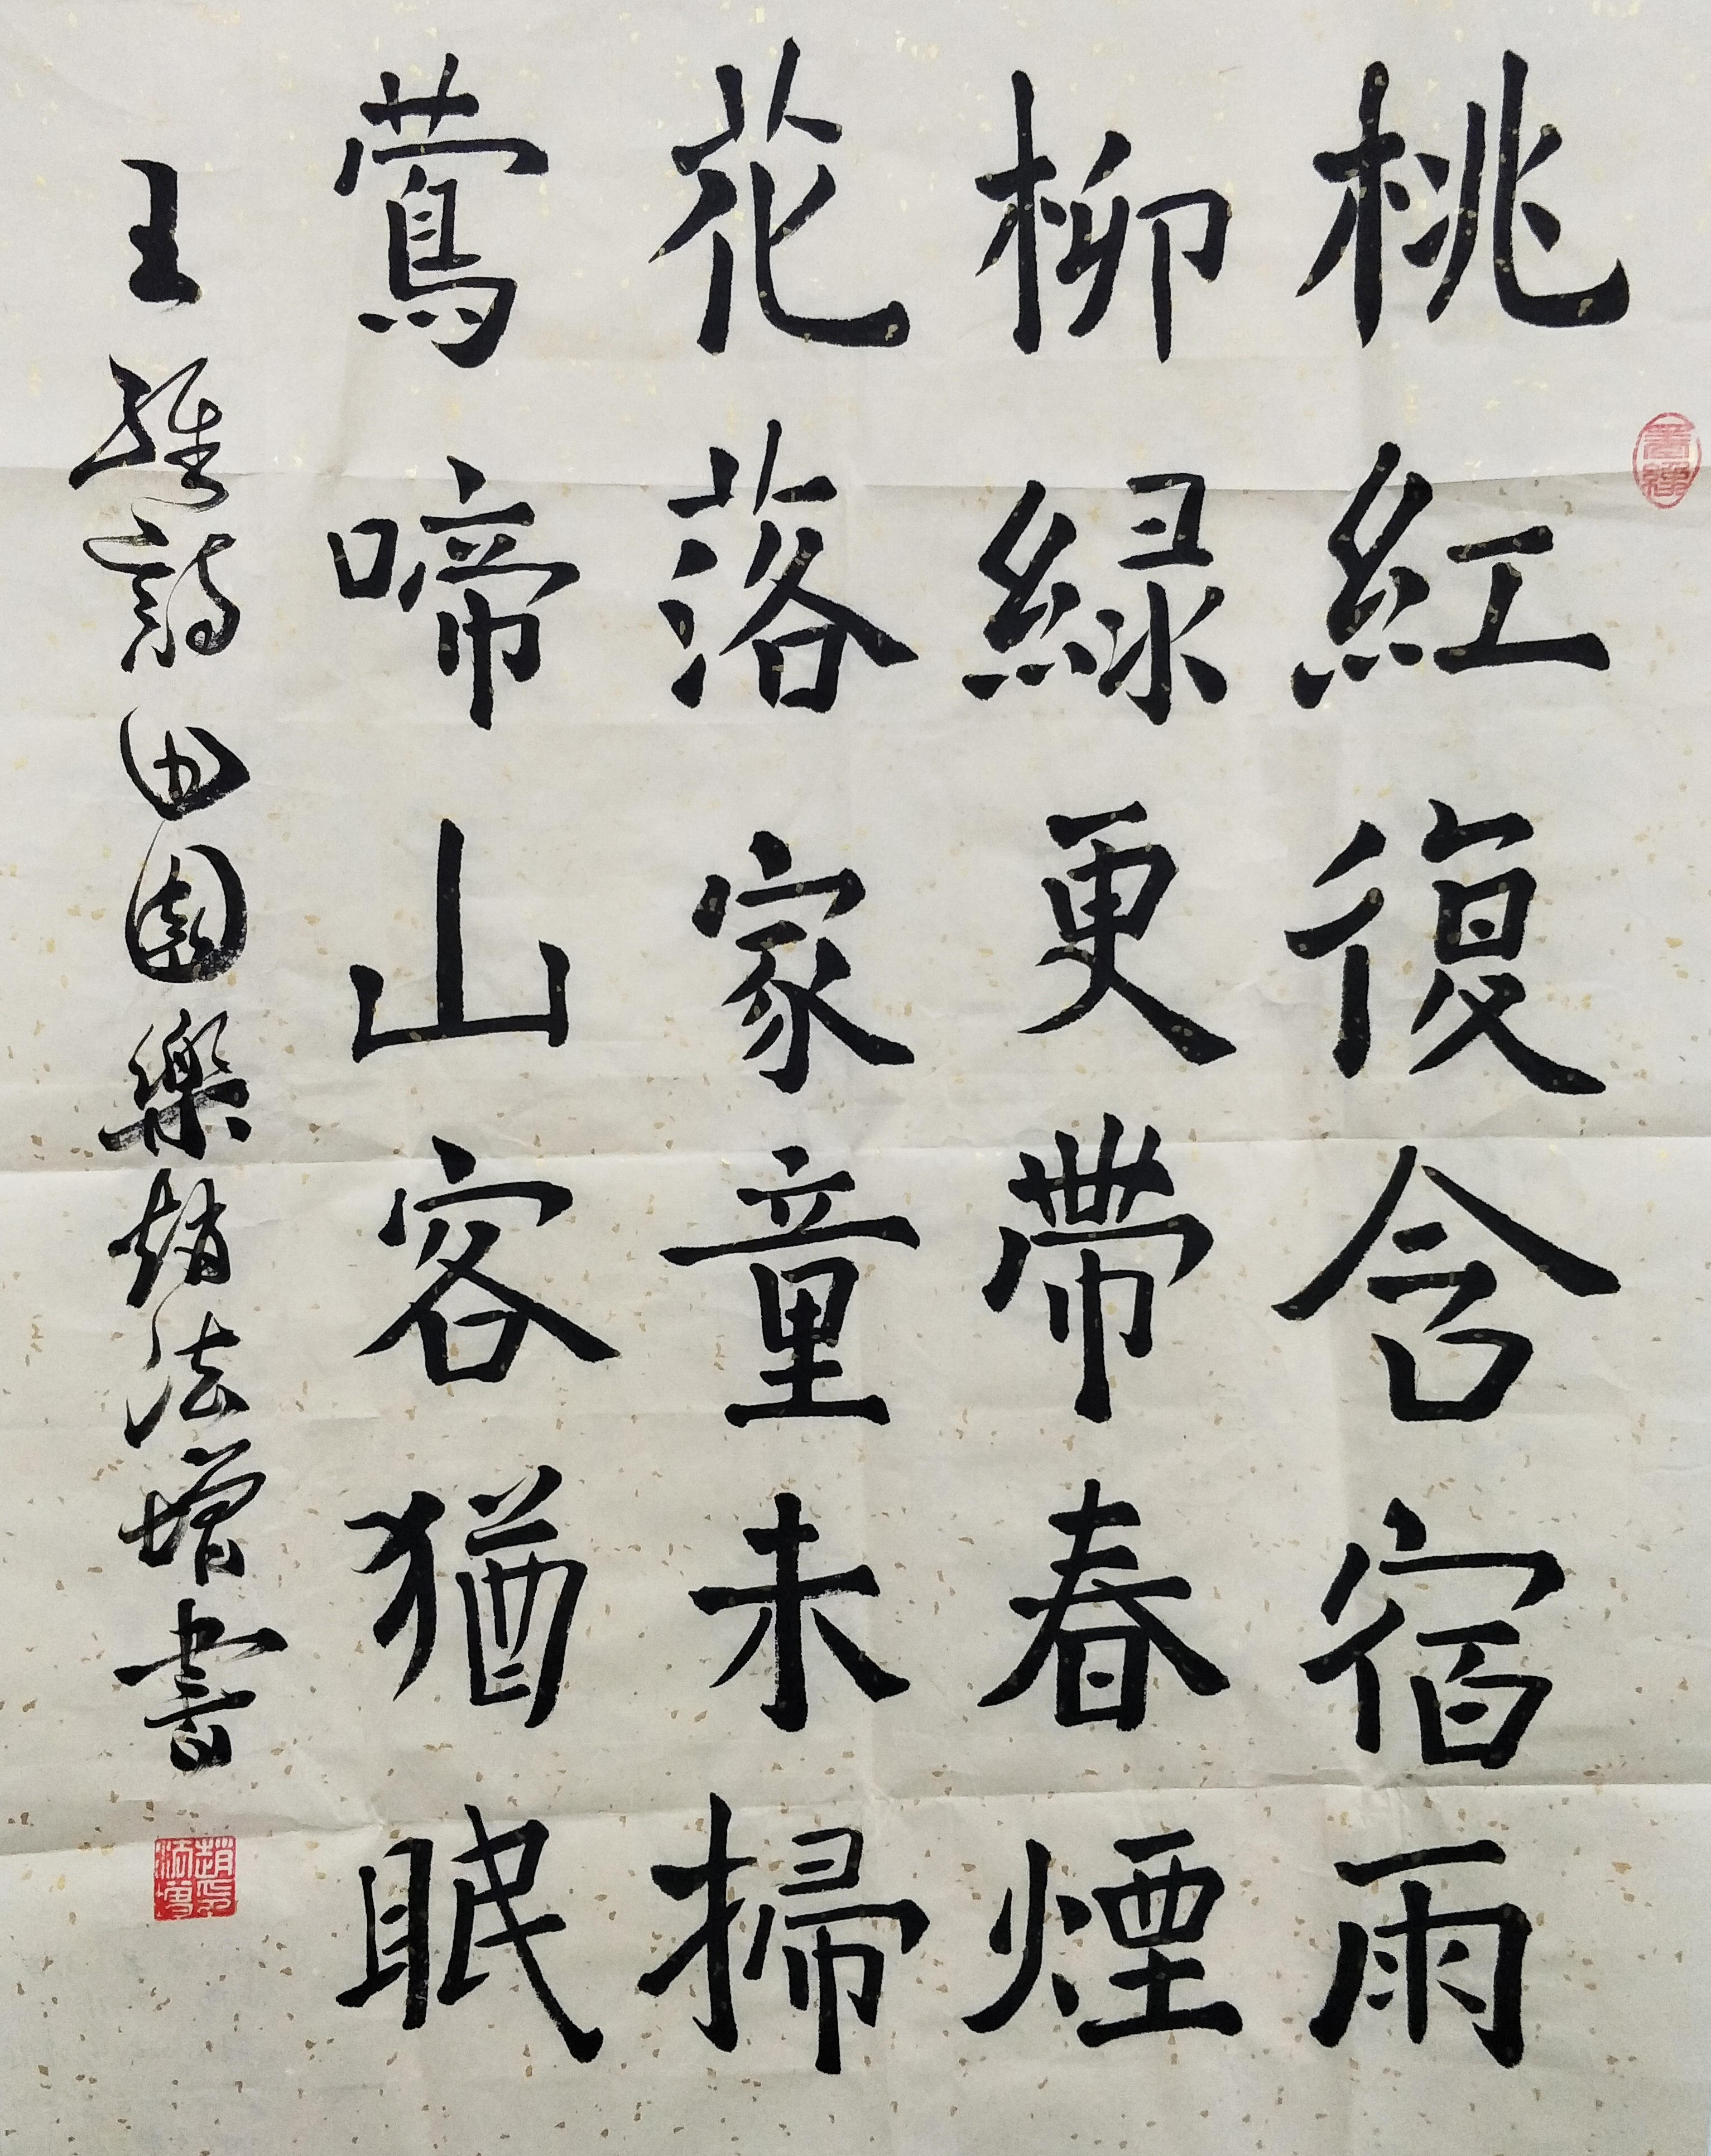 桃紅復含宿雨
柳緑更帶春煙
花落家童未掃
鶯啼山客猶眠
王維詩田園樂趙法增書